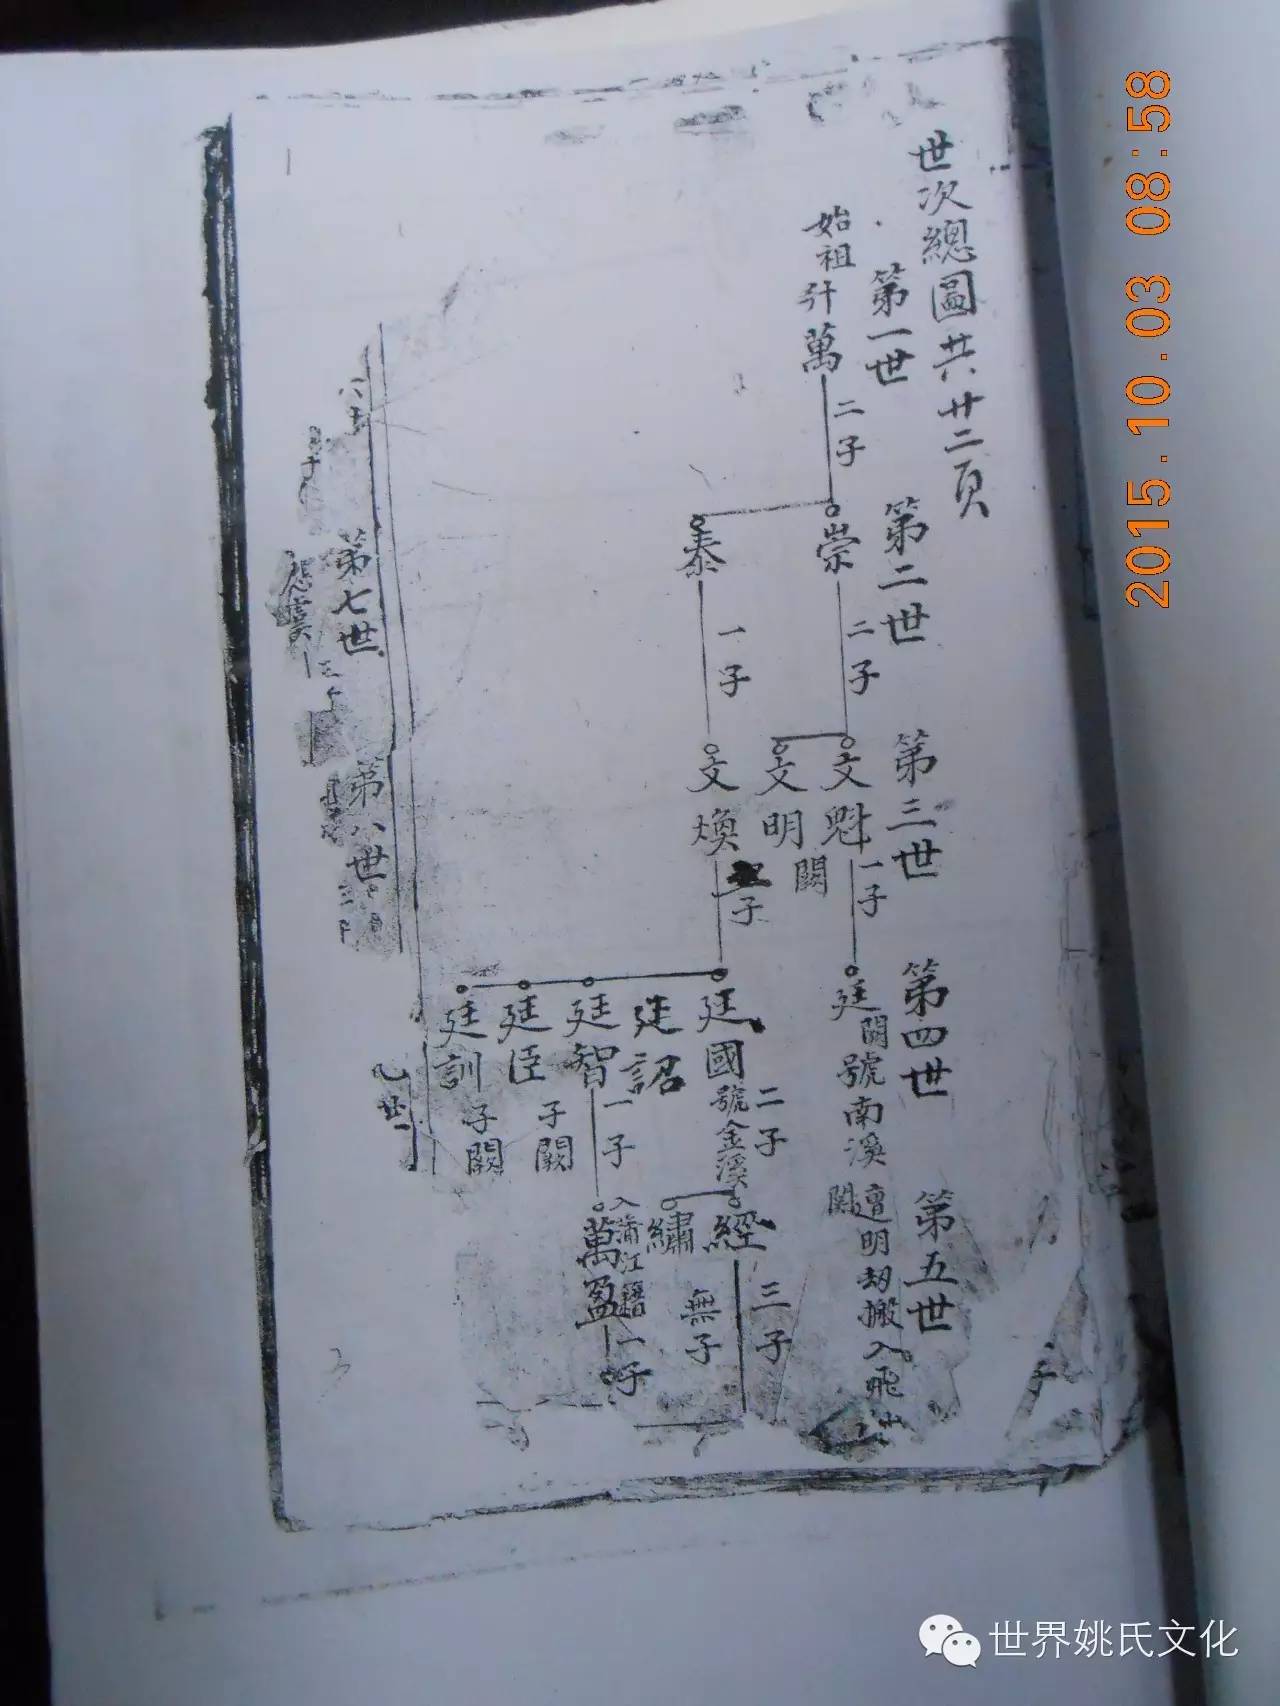 世次總圖共廿二頁
第一世
始祖
萬
二子
第二世
崇
二子
泰
一子
第三世
文魁
一子
文明
闕
文煥
子
第四世
廷
闕
號南溪
廷國
號金溪
二子
廷詔
廷智
一子
廷臣
子闕
廷訓
子闕
第五世
遭明劫搬入
經
三子
繡
無子
萬盈
入蒲江籍
一子
第七世
第八世
2015.10.03 08:58
世界姚氏文化